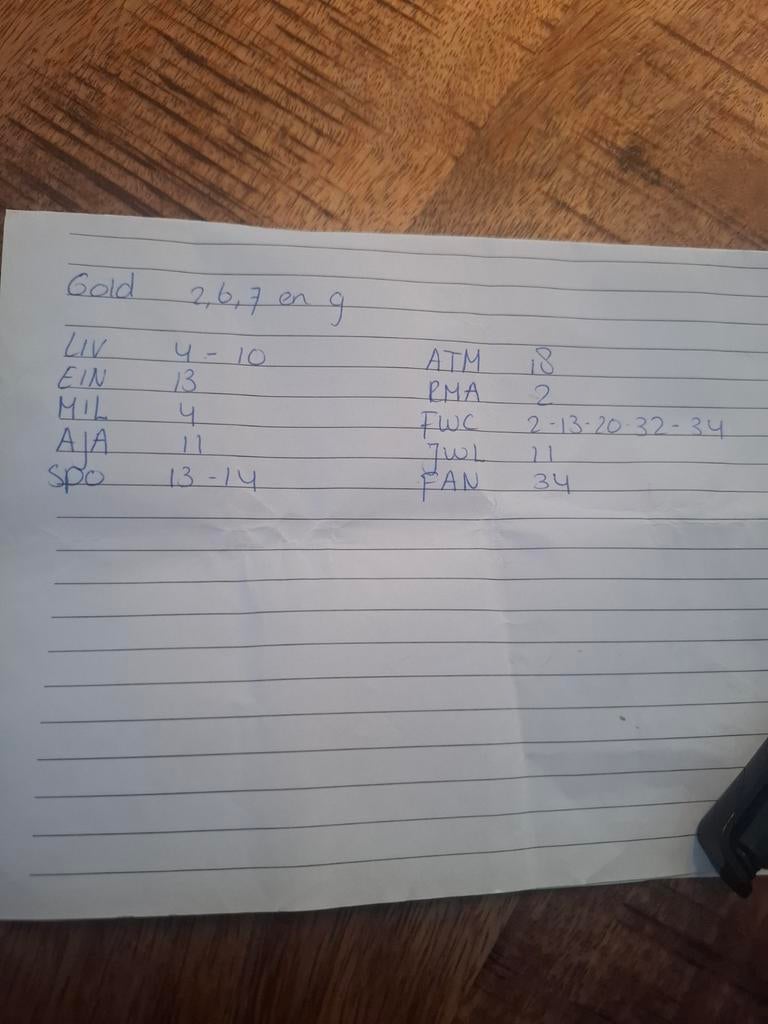 Gold 2, 6, 7 en 9
LIV 4 - 10
EIN 13
MIL 4
AJA 11
SPO 13 - 14
ATM 18
RMA 2
FWC 2-13-20-32-34
JWL 11
FAN 34